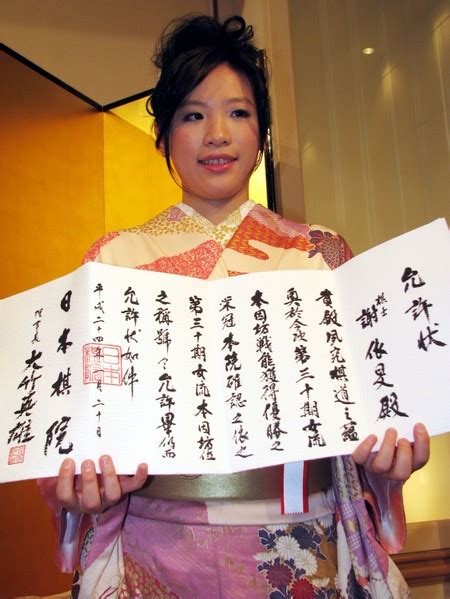 允許状
棋士 謝依旻殿
貴殿夙究棋道之蘊
奥於今次第三十期女流
本因坊戦能獲得優勝之
栄冠本院確認之依之
第三十期女流本因坊位
之稱號 允許畢仍而
允許状如件
平成二十四年 月二十日
日本棋院
理事長 大竹英雄